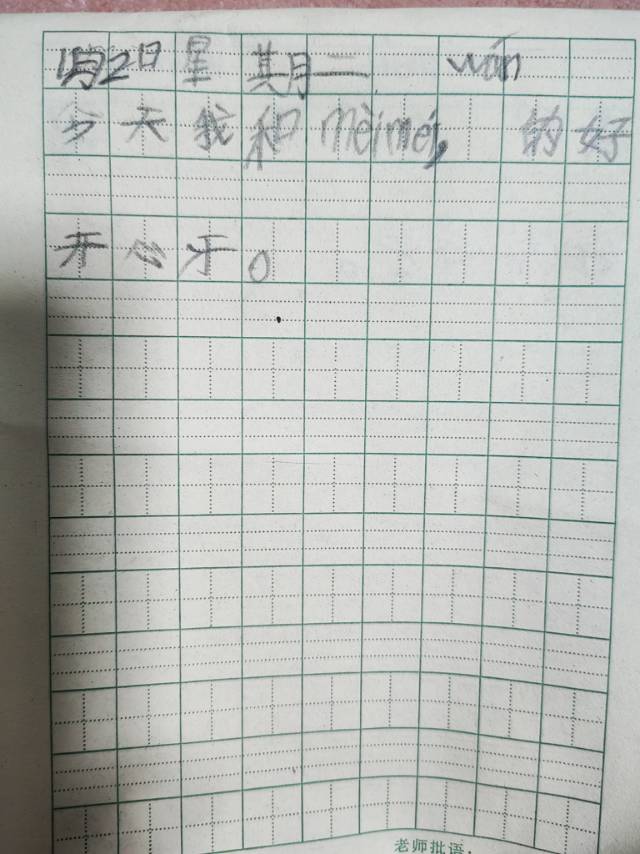 1月2日 星期二 wán
今天我和mèimei, 的好
开心牙。
老师批语: